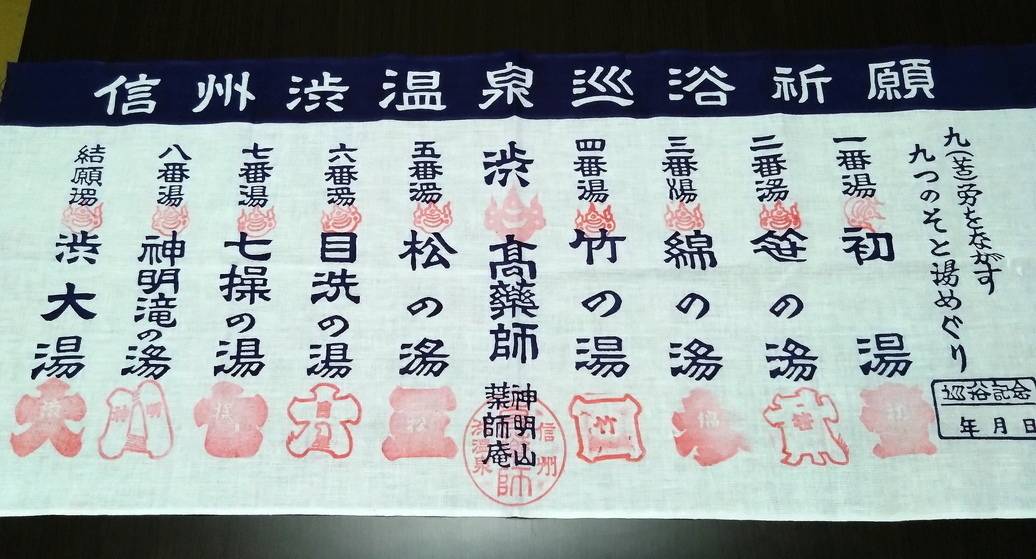 信州渋温泉巡浴祈願
九(苦)労をながす
九つのそと湯めぐり
巡浴記念
年月日
一番湯
初湯
初
二番湯
笹の湯
笹
三番湯
綿の湯
綿
四番湯
竹の湯
竹
渋
高薬師
神明山
薬師庵
信州
渋温泉
師
五番湯
松の湯
松
六番湯
目洗の湯
七番湯
七操の湯
八番湯
神明滝の湯
神明
結願湯
渋大湯